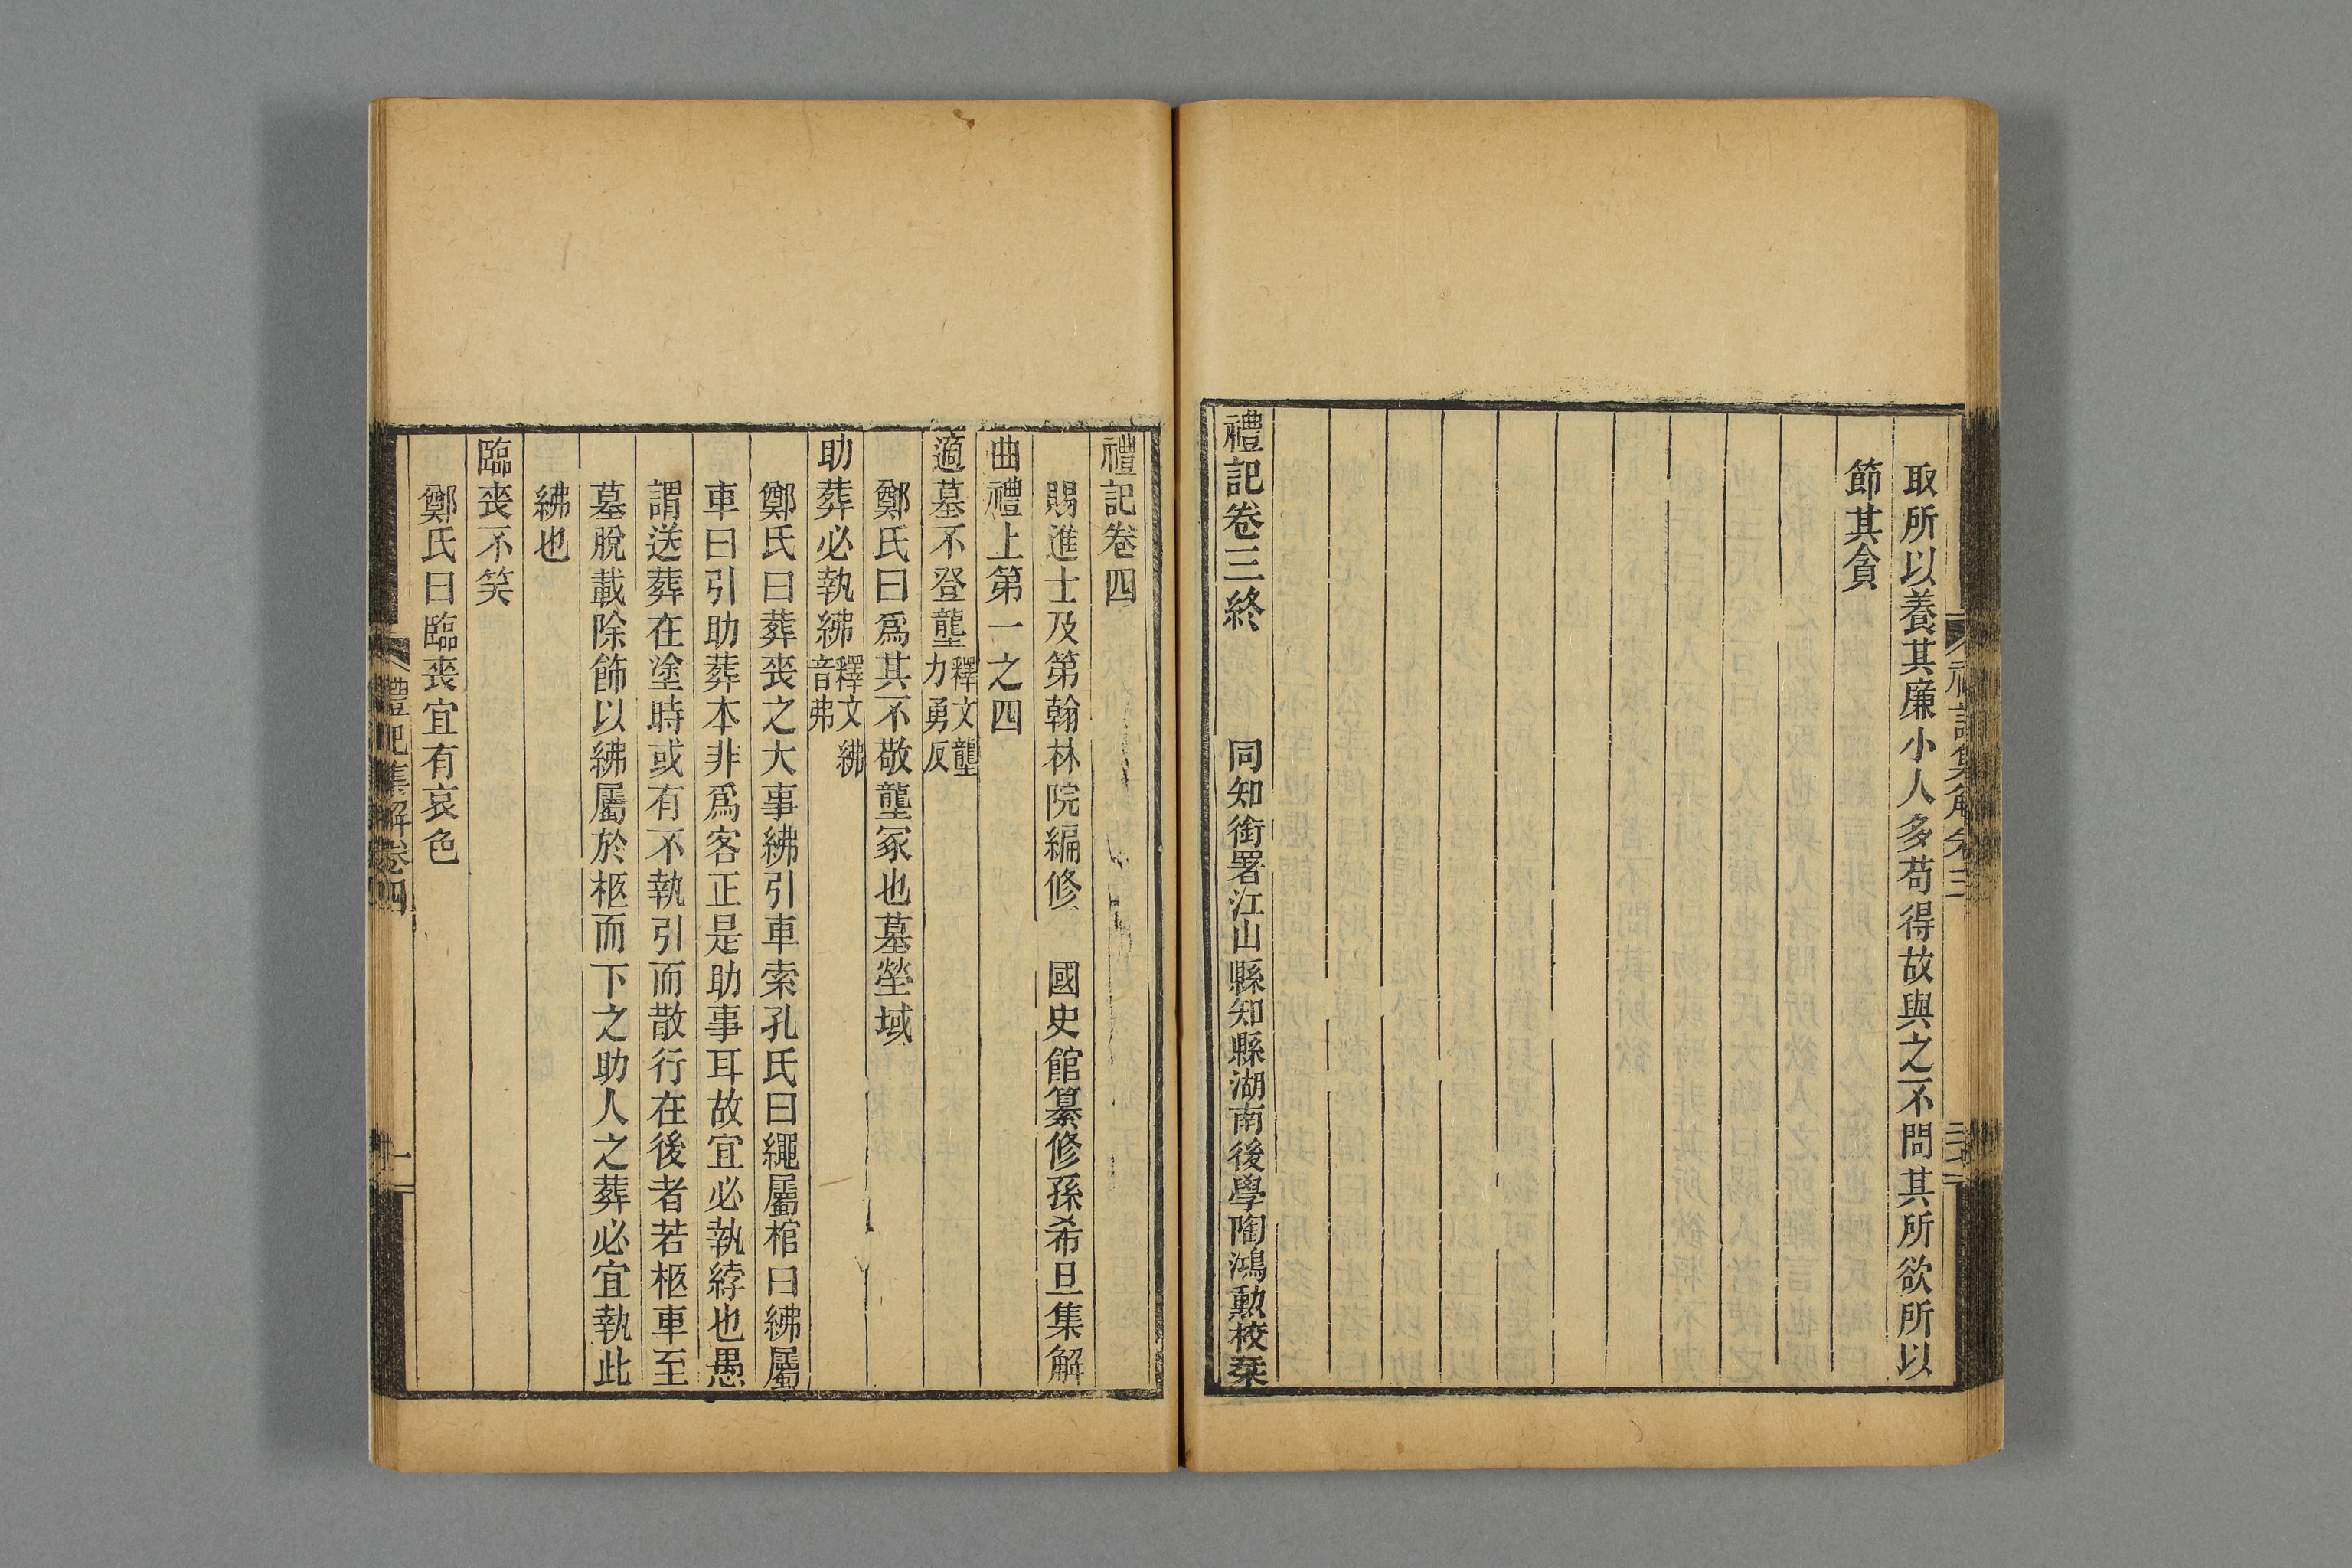 禮記集解卷三
取所以養其廉小人多苟得故與之不問其所欲所以
節其貪
禮記卷三終 同知銜署江山縣知縣湖南後學陶鴻勳校栞
禮記卷四
賜進士及第翰林院編修 國史館纂修孫希旦集解
曲禮上第一之四
適墓不登壟釋文壟力勇反
鄭氏曰爲其不敬壟冢也墓塋域
助葬必執紼釋文紼音弗
鄭氏曰葬喪之大事紼引車索孔氏曰繩屬棺曰紼屬
車曰引助葬本非爲客正是助事耳故宜必執綍也愚
謂送葬在塗時或有不執引而散行在後者若柩車至
墓脫載除飾以紼屬於柩而下之助人之葬必宜執此
紼也
臨喪不笑
鄭氏曰臨喪宜有哀色
禮記集解卷四
一